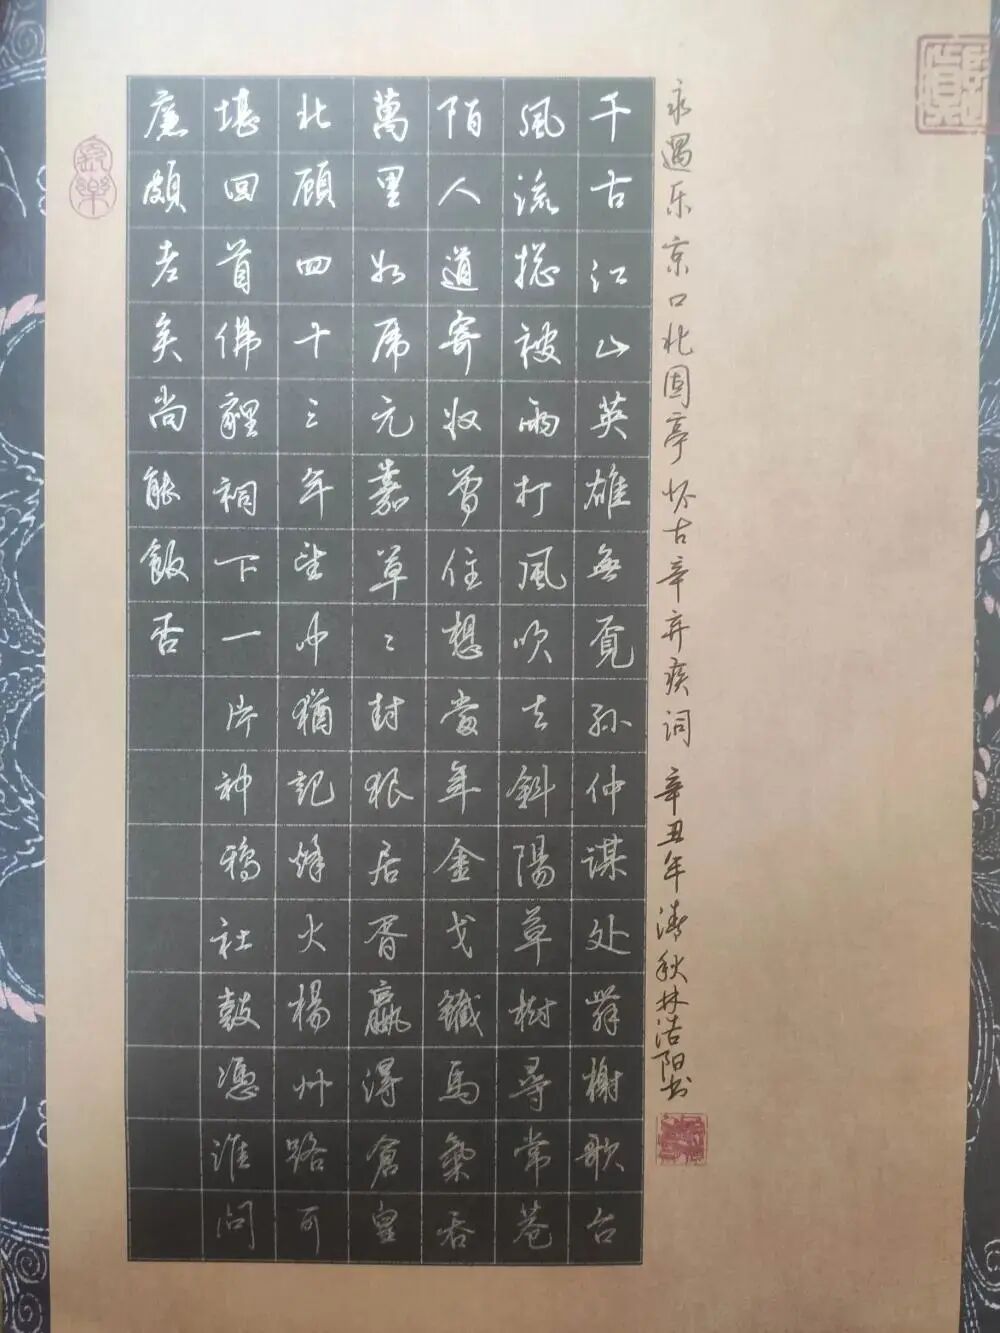 永遇乐 京口北固亭怀古 辛弃疾词 辛丑年清秋林浩阳书
千古江山英雄無覓孙仲謀处舞榭歌台
風流揔被雨打風吹去斜陽草樹尋常巷
陌人道寄奴曾住想當年金戈鐵馬氣吞
萬里如虎元嘉草〻封狼居胥贏得倉皇
北顾四十三年望中猶記烽火楊州路可
堪回首佛貍祠下一片神鴉社鼓憑谁问
廉頗老矣尚能飯否